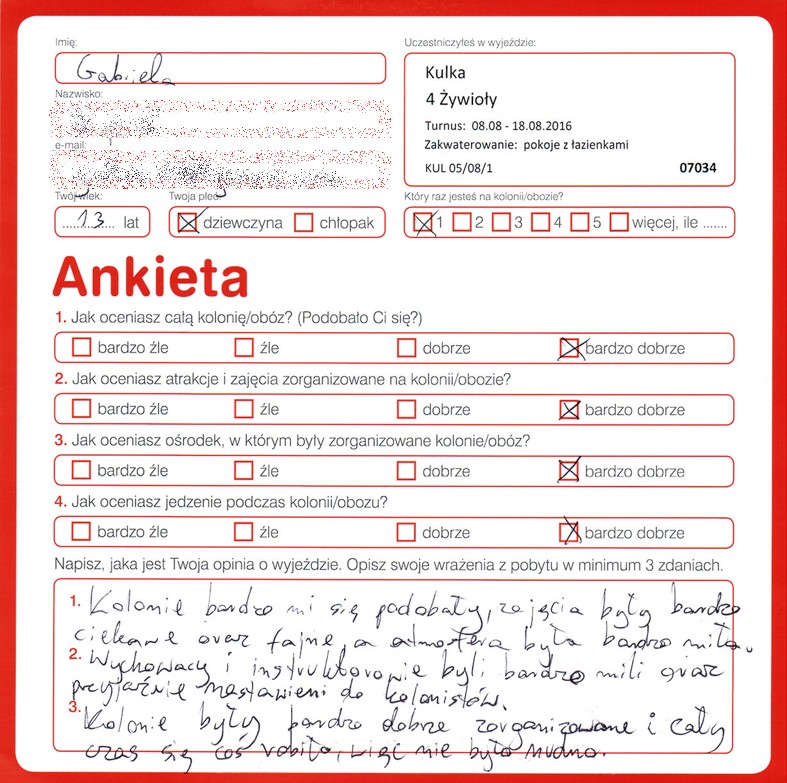 Imię:
Gabriela
Nazwisko:
e-mail:
Uczestniczyłeś w wyjeździe:
Kulka
4 Żywioły
Turnus: 08.08 - 18.08.2016
Zakwaterowanie: pokoje z łazienkami
KUL 05/08/1 07034
Twój wiek:
13 lat
Twoja płeć
dziewczyna chłopak
Który raz jesteś na kolonii/obozie?
1 2 3 4 5 więcej, ile .......
Ankieta
1. Jak oceniasz całą kolonię/obóz? (Podobało Ci się?)
bardzo źle źle dobrze bardzo dobrze
2. Jak oceniasz atrakcje i zajęcia zorganizowane na kolonii/obozie?
bardzo źle źle dobrze bardzo dobrze
3. Jak oceniasz ośrodek, w którym były zorganizowane kolonie/obóz?
bardzo źle źle dobrze bardzo dobrze
4. Jak oceniasz jedzenie podczas kolonii/obozu?
bardzo źle źle dobrze bardzo dobrze
Napisz, jaka jest Twoja opinia o wyjeździe. Opisz swoje wrażenia z pobytu w minimum 3 zdaniach.
1. Kolonie bardzo mi się podobały, zajęcia były bardzo
ciekawe oraz fajne, a atmosfera była bardzo miła.
2. Wychowacy i instruktorowie byli bardzo mili oraz
przyjaźnie nastawieni do kolonistów.
3. Kolonie były bardzo dobrze zorganizowane i cały
czas się coś robiło, więc nie było nudno.